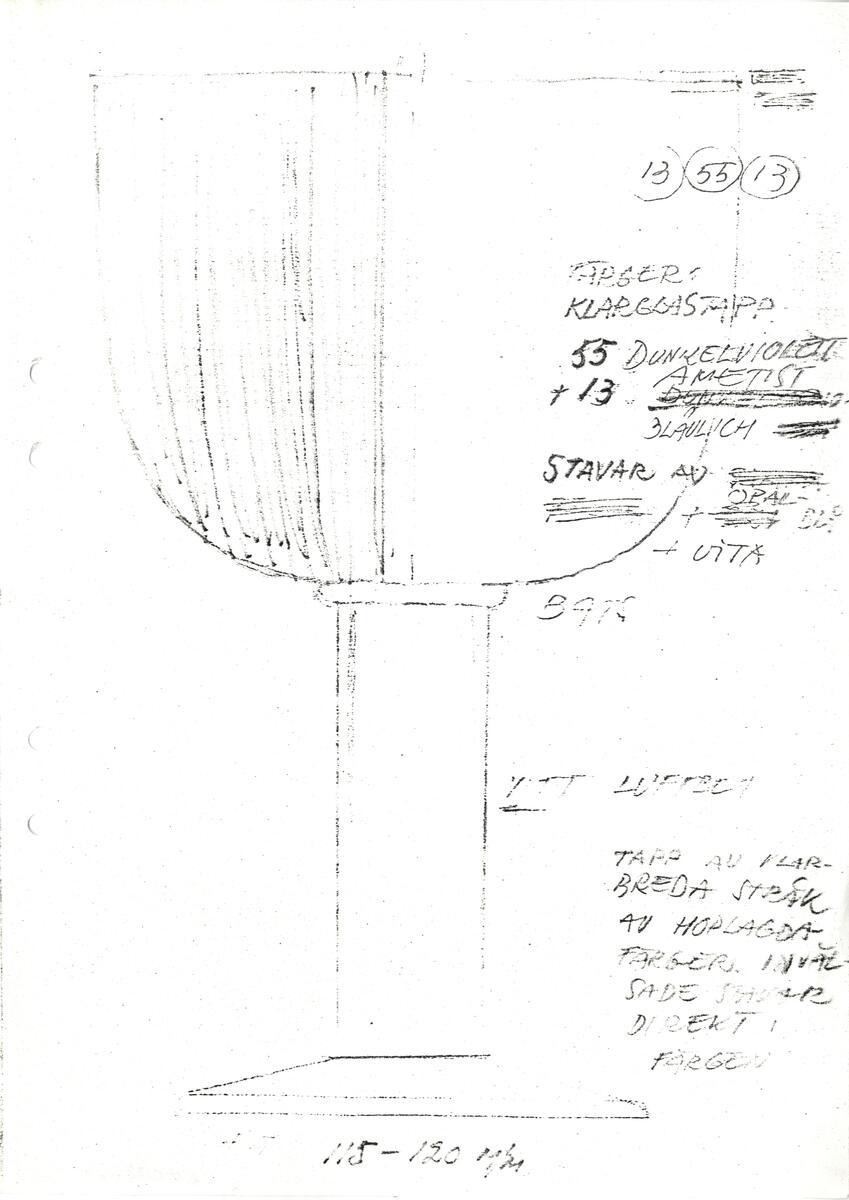 13 55 13
FÄRGER:
KLARGLASTAPP
55 DUNKELVIOLETT
AMETIST
+ 13
BLÄULICH
STAVAR AV
OPAL-
+ BLÅ
+ VITA
TAPP AV KLAR-
BREDA STRÅK
AV HOPLAGDA
FÄRGER. INVÄL-
SADE STAVAR
DIREKT I
FÄRGEN
115-120 m/m